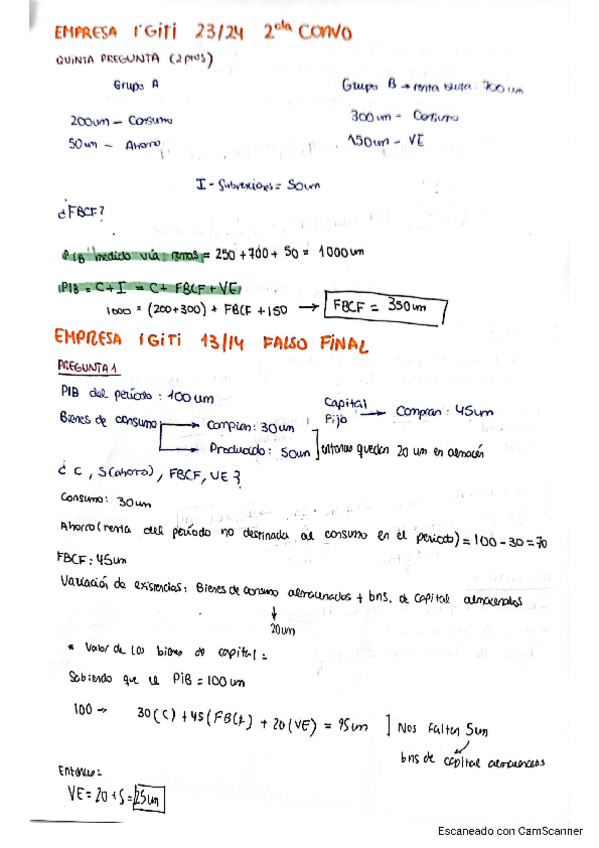 EMPRESA IGITI 23/24 2ª CONVO
QUINTA PREGUNTA (2 ptos)
Grupo A
Grupo B → renta bruta: 700um
200um - Consumo
300um - Consumo
50um - Ahorro
150um - VE
I - Subvenciones = 50um
¿FBCF?
PIB medido vía rentas = 250 + 700 + 50 = 1000um
PIB = C + I = C + FBCF + VE
1000 = (200+300) + FBCF + 150 → FBCF = 350um
EMPRESA IGITI 13/14 FALSO FINAL
PREGUNTA 1
PIB del período: 100um
Bienes de consumo → Compran: 30um
→ Producido: 50um ] entonces quedan 20 um en almacén
Capital Fijo → Compran: 45um
¿ C, S(ahorro), FBCF, VE ?
Consumo: 30um
Ahorro (renta del período no destinada al consumo en el período) = 100 - 30 = 70
FBCF: 45um
Variación de existencias: Bienes de consumo almacenados + bns. de capital almacenados
↓
20um
* Valor de los bienes de capital:
Sabiendo que el PIB = 100um
100 → 30(C) + 45(FBCF) + 20(VE) = 95um ] Nos faltan 5um
bns de capital almacenados
Entonces:
VE = 20 + 5 = 25um
Escaneado con CamScanner